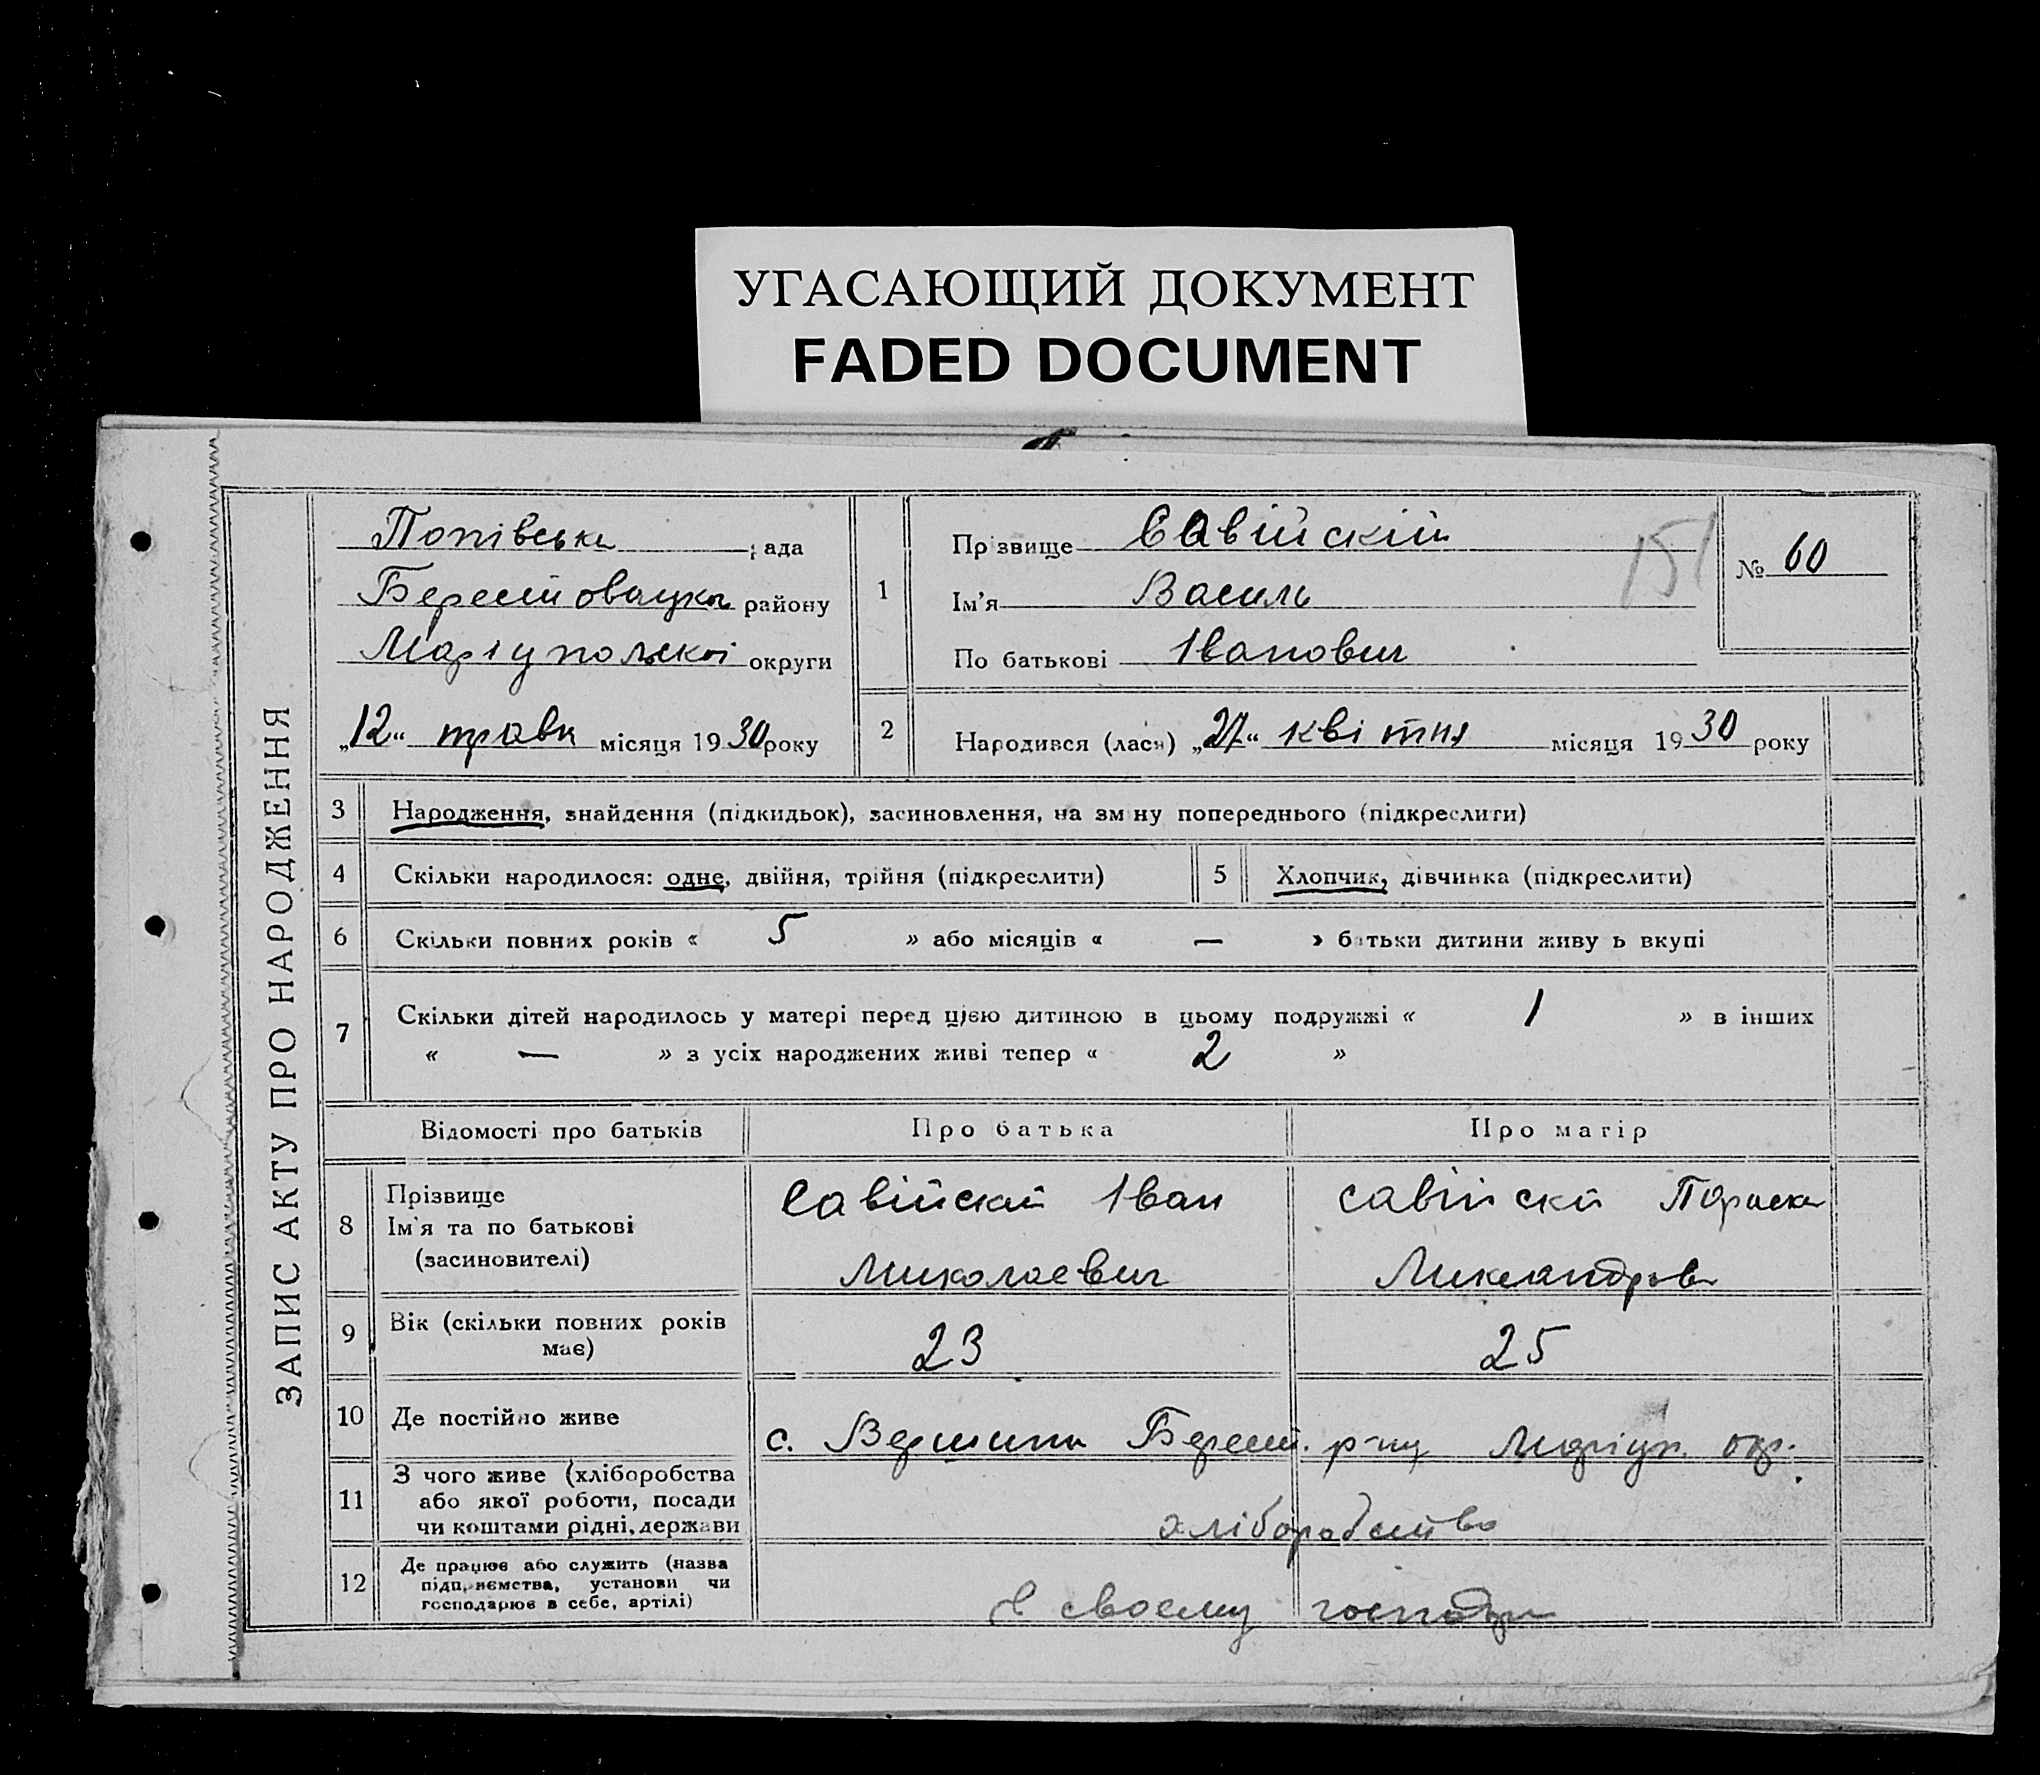 УГАСАЮЩИЙ ДОКУМЕНТ
FADED DOCUMENT
ЗАПИС АКТУ ПРО НАРОДЖЕННЯ
Попівська рада
району
Маріупольскої округи
„12“ травн місяця 1930 року
1
Прізвище Савійскій
Ім'я Василь
По батькові Іванович
151
№ 60
2
Народився (лася) „27“ квітня місяця 1930 року
3 Народження, знайдення (підкидьок), засиновлення, на зміну попереднього (підкреслити)
4 Скільки народилося: одне, двійня, трійня (підкреслити)
5 Хлопчик, дівчинка (підкреслити)
6 Скільки повних років « 5 » або місяців « — » батьки дитини живуть вкупі
7 Скільки дітей народилось у матері перед цією дитиною в цьому подружжі « 1 » в інших
« — » з усіх народжених живі тепер « 2 »
Відомості про батьків
Про батька
Про матір
8 Прізвище
Ім'я та по батькові
(засиновителі)
Савійский Іван
Миколаевич
Савійскй Параска
9 Вік (скільки повних років
має)
23
25
10 Де постійно живе
с. Вершина Берест. р-ну Маріуп. окр.
11 З чого живе (хліборобства
або якої роботи, посади
чи коштами рідні, держави
хліборобство
12 Де працює або служить (назва
підприємства, установи чи
господарює в себе, артілі)
в своему господар